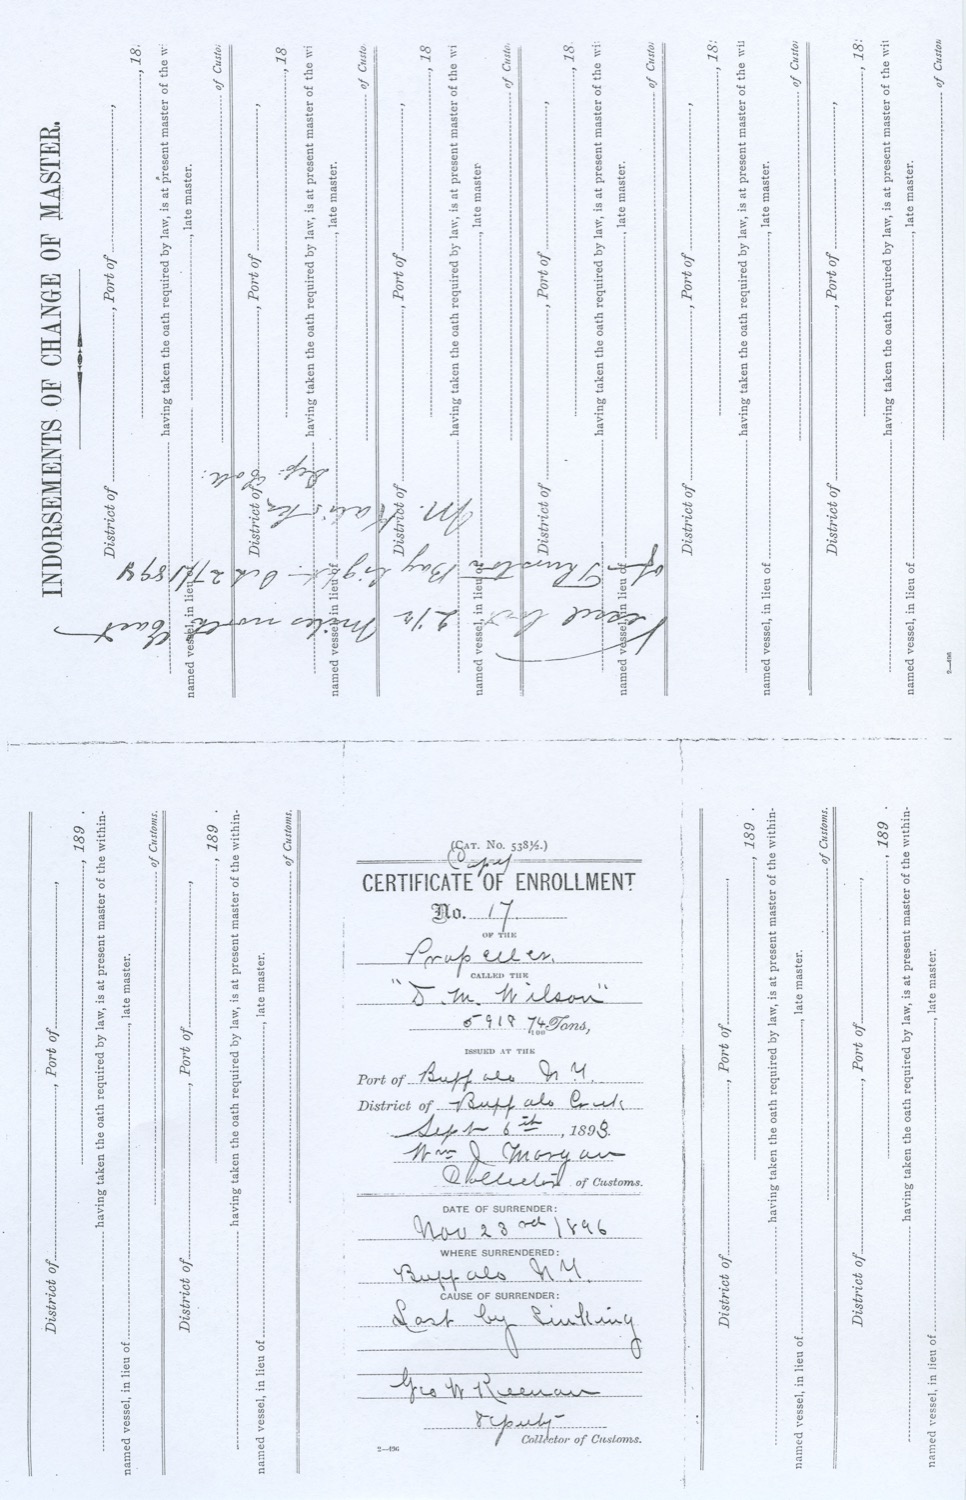 INDORSEMENTS OF CHANGE OF MASTER.
District of , Port of ,
, 18
having taken the oath required by law, is at present master of the wi
named vessel, in lieu of , late master.
of Custo
District of , Port of ,
, 18
having taken the oath required by law, is at present master of the wi
named vessel, in lieu of , late master.
of Custo
District of , Port of ,
, 18
having taken the oath required by law, is at present master of the wi
named vessel, in lieu of , late master
of Custo
District of , Port of ,
, 18
having taken the oath required by law, is at present master of the wi
named vessel, in lieu of , late master.
of Custo
District of , Port of ,
, 18
having taken the oath required by law, is at present master of the wi
named vessel, in lieu of , late master.
of Custo
District of , Port of ,
, 18
having taken the oath required by law, is at present master of the wi
named vessel, in lieu of , late master.
of Custo
2—496
Vessel lost 2 1/2 miles north East
of Thunder Bay Light. Oct 27/1894
M.
Dep. Coll.
District of , Port of ,
, 189 .
having taken the oath required by law, is at present master of the within-
named vessel, in lieu of , late master.
of Customs.
District of , Port of ,
, 189 .
having taken the oath required by law, is at present master of the within-
named vessel, in lieu of , late master.
of Customs.
(CAT. No. 538½.)
Copy
CERTIFICATE OF ENROLLMENT
No. 17
OF THE
Propeller.
CALLED THE
"D. M. Wilson"
74/100 Tons,
ISSUED AT THE
Port of Buffalo N.Y.
District of Buffalo Creek
Sept 6th, 1893.
Wm J Morgan
Collector of Customs.
DATE OF SURRENDER:
Nov 23rd 1896
WHERE SURRENDERED:
Buffalo N.Y.
CAUSE OF SURRENDER:
Lost by Sinking
Geo W Keenan
Deputy
Collector of Customs.
2—496
District of , Port of ,
, 189 .
having taken the oath required by law, is at present master of the within-
named vessel, in lieu of , late master.
of Customs.
District of , Port of ,
, 189 .
having taken the oath required by law, is at present master of the within-
named vessel, in lieu of , late master.